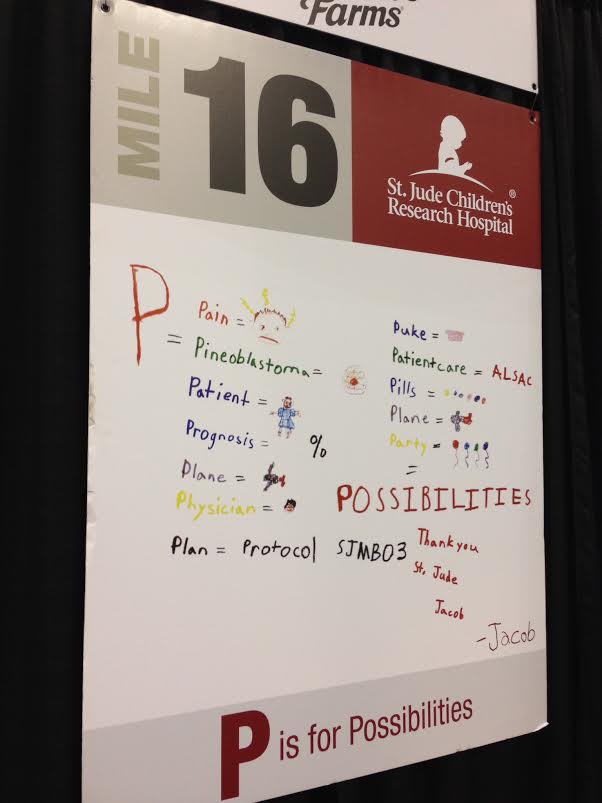 Farms®
MILE 16
St. Jude Children's®
Research Hospital
P
= Pain =
Pineoblastoma =
Patient =
Prognosis = %
Plane =
Physician =
Plan = Protocol SJMB03
Puke =
Patientcare = ALSAC
Pills =
Plane =
Party =
=
POSSIBILITIES
Thank you
St. Jude
Jacob
-Jacob
P is for Possibilities